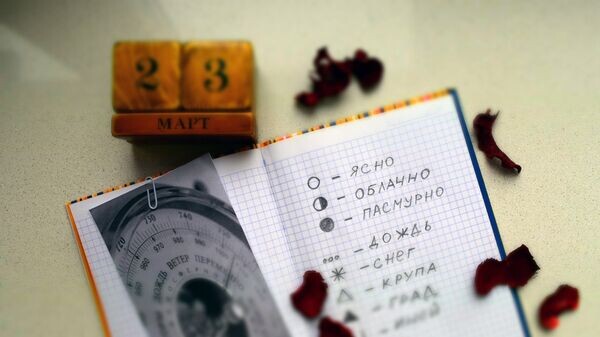 2 3
МАРТ
- ЯСНО
- ОБЛАЧНО
- ПАСМУРНО
- ДОЖДЬ
- СНЕГ
- КРУПА
- ГРАД
- ИНЕЙ
720
740
760
980
960
ДОЖДЬ ВЕТЕР ПЕРЕМЕ